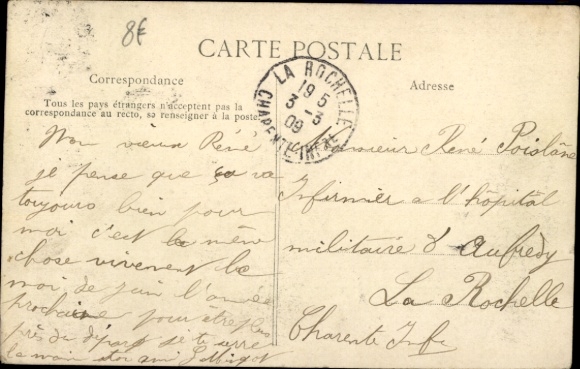 8€
CARTE POSTALE
Correspondance
Tous les pays étrangers n'acceptent pas la
correspondance au recto, se renseigner à la poste
Mon vieux René
je pense que ça va
toujours bien pour
moi c'est la même
chose vivement le
moi de juin l'année
prochaine pour être plus
près du départ je te serre
la main ton ami
LA ROCHELLE
19 5
3 - 3
09
CHARENTE-INFRE
Adresse
Monsieur René Poislâne
Infirmier a l'hôpital
militaire d'Aufredy
La Rochelle
Charente Infre